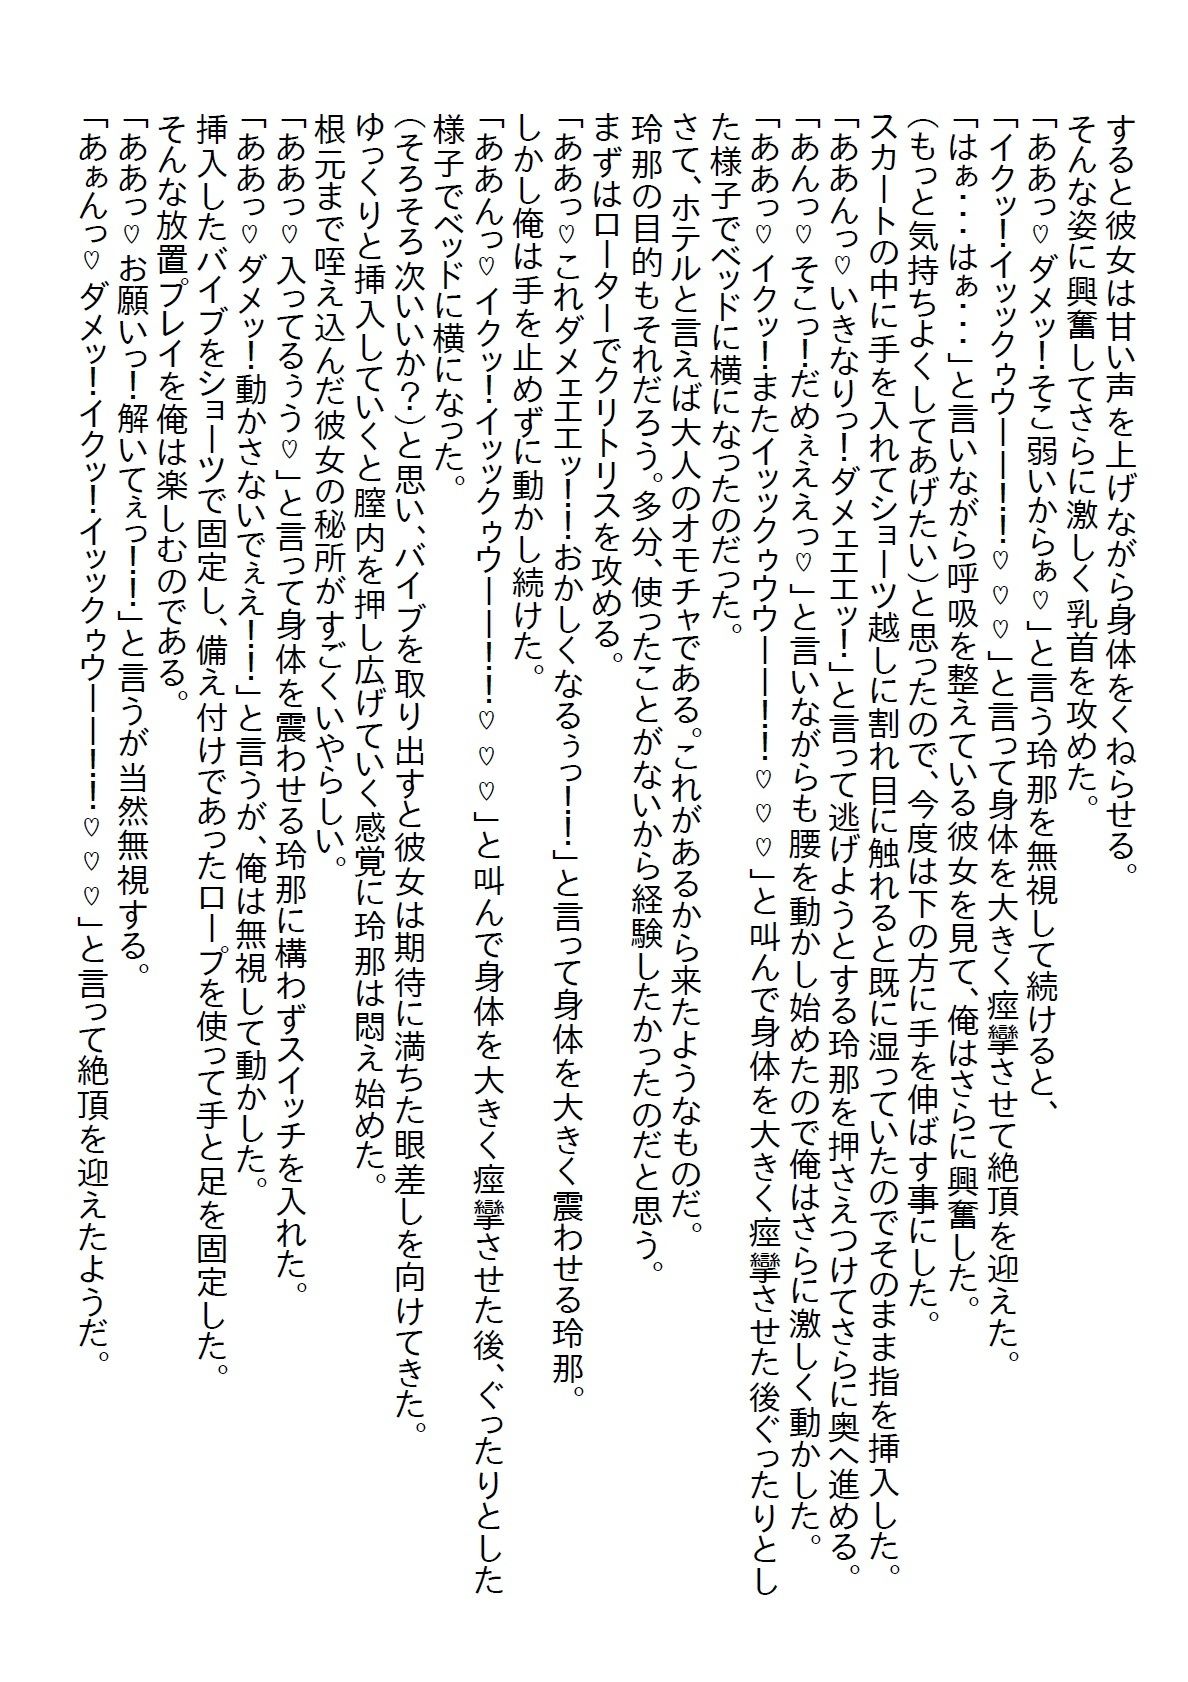 すると彼女は甘い声を上げながら身体をくねらせる。
そんな姿に興奮してさらに激しく乳首を攻めた。
「ああっ♡ダメッ！そこ弱いからぁ♡」と言う玲那を無視して続けると、
「イクッ！イッックゥウーー！！♡♡♡」と言って身体を大きく痙攣させて絶頂を迎えた。
「はぁ・・・はぁ・・・」と言いながら呼吸を整えている彼女を見て、俺はさらに興奮した。
（もっと気持ちよくしてあげたい）と思ったので、今度は下の方に手を伸ばす事にした。
スカートの中に手を入れてショーツ越しに割れ目に触れると既に湿っていたのでそのまま指を挿入した。
「ああんっ♡いきなりっ！ダメェエエッ！」と言って逃げようとする玲那を押さえつけてさらに奥へ進める。
「あんっ♡そこっ！だめぇええっ♡」と言いながらも腰を動かし始めたので俺はさらに激しく動かした。
「ああっ♡イクッ！またイッックゥウウーー！！♡♡♡」と叫んで身体を大きく痙攣させた後ぐったりとし
た様子でベッドに横になったのだった。
さて、ホテルと言えば大人のオモチャである。これがあるから来たようなものだ。
玲那の目的もそれだろう。多分、使ったことがないから経験したかったのだと思う。
まずはローターでクリトリスを攻める。
「ああっ♡これダメェエエッ！！おかしくなるぅっ！！」と言って身体を大きく震わせる玲那。
しかし俺は手を止めずに動かし続けた。
「ああんっ♡イクッ！イッックゥウーー！！♡♡♡」と叫んで身体を大きく痙攣させた後、ぐったりとした
様子でベッドに横になった。
（そろそろ次いいか？）と思い、バイブを取り出すと彼女は期待に満ちた眼差しを向けてきた。
ゆっくりと挿入していくと膣内を押し広げていく感覚に玲那は悶え始めた。
根元まで咥え込んだ彼女の秘所がすごくいやらしい。
「ああっ♡入ってるぅう♡」と言って身体を震わせる玲那に構わずスイッチを入れた。
「ああっ♡ダメッ！動かさないでぇえ！！」と言うが、俺は無視して動かした。
挿入したバイブをショーツで固定し、備え付けであったロープを使って手と足を固定した。
そんな放置プレイを俺は楽しむのである。
「ああっ♡お願いっ！解いてぇっ！！」と言うが当然無視する。
「あぁんっ♡ダメッ！イクッ！イッックゥウーー！！♡♡♡」と言って絶頂を迎えたようだ。